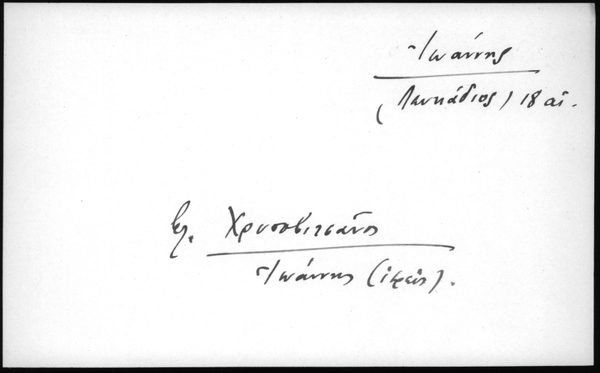 Ἰωάννης
(Λευκάδιος) 18 αἰ.
βλ. Χρυσοβιτσᾶνος
Ἰωάννης (ἱερεύς).